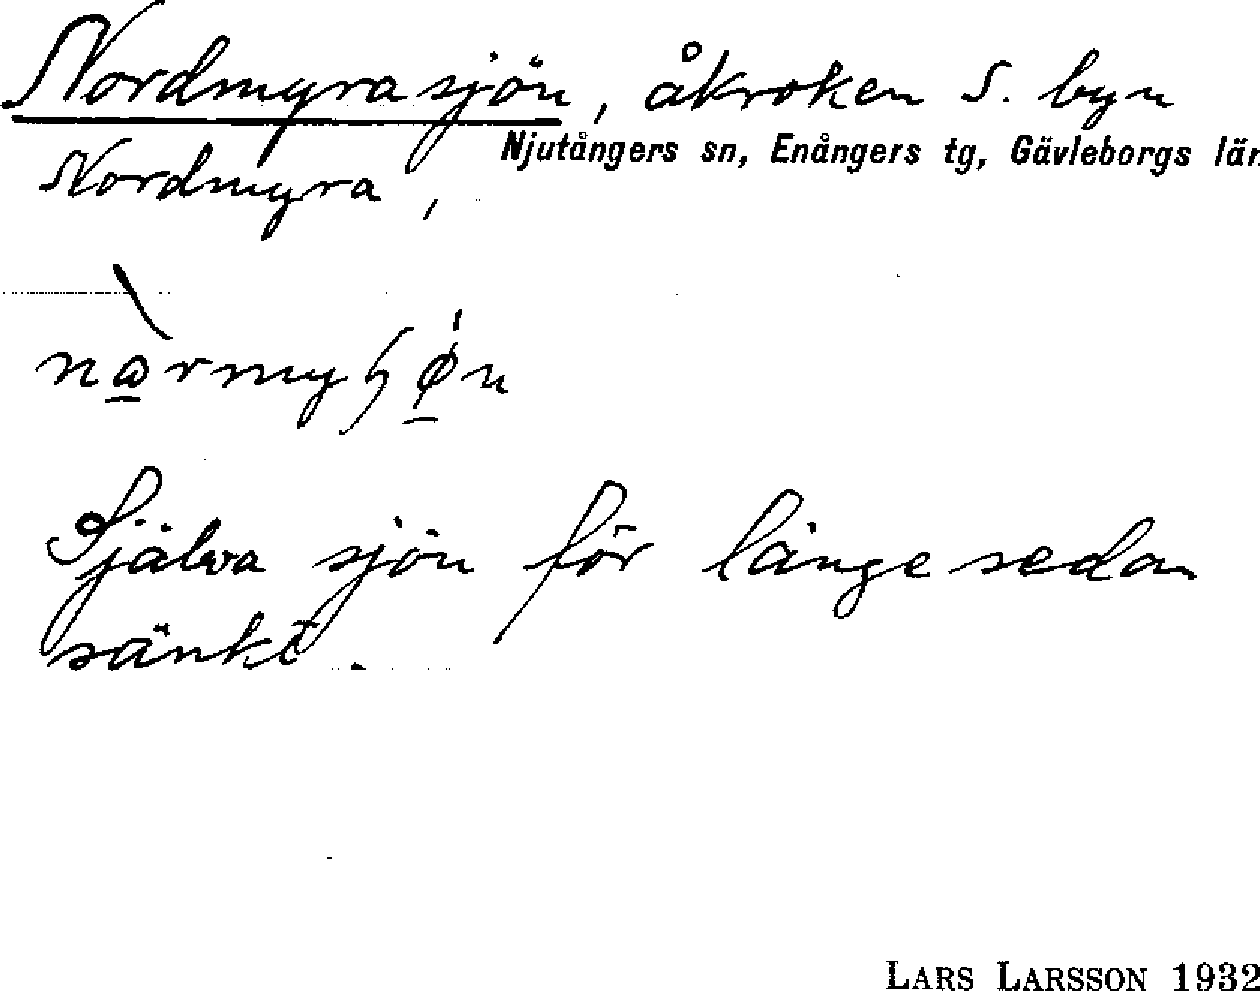 Nordmyrasjön, åkroken S. byn
Njutångers sn, Enångers tg, Gävleborgs län
Nordmyra,
Själva sjön för länge sedan
sänkt.
LARS LARSSON 1932